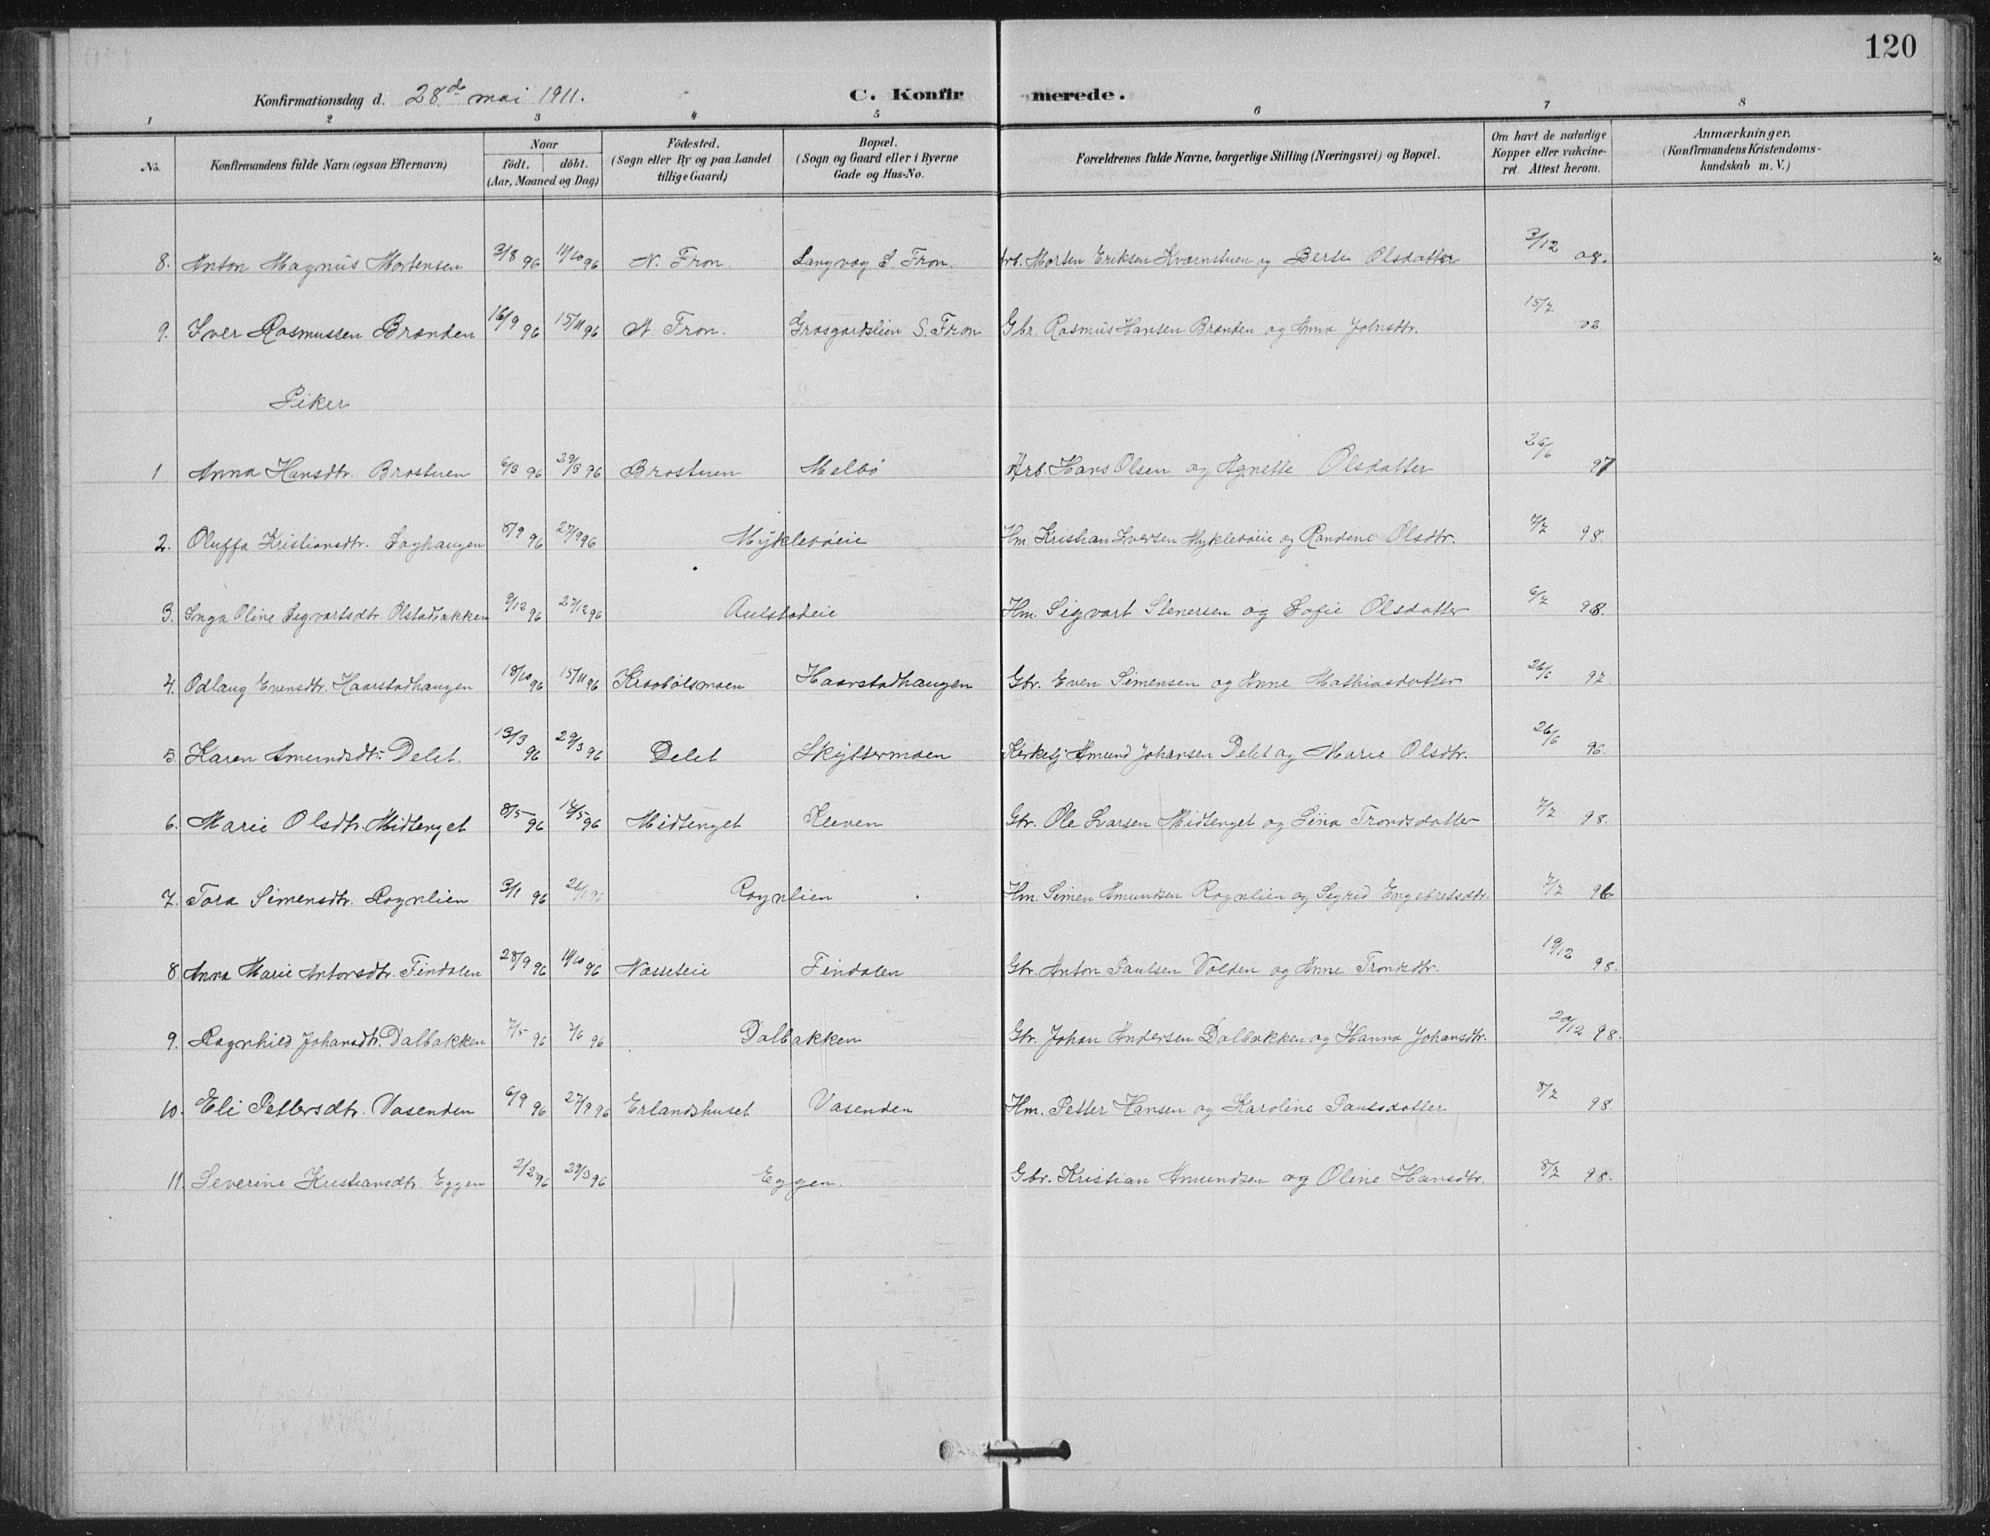 120
Konfirmationsdag d. 28de mai 1911. C. Konfir merede.
1 2 3 4 5 6 7 8
No. Konfirmandens fulde Navn (ogsaa Efternavn) Naar født. døbt. (Aar, Maaned og Dag) Födested. (Sogn eller By og paa Landet tillige Gaard) Bopæl. (Sogn og Gaard eller i Byerne Gade og Hus-No. Forældrenes fulde Navne, borgerlige Stilling (Næringsvei) og Bopæl. Om havt de naturlige Kopper eller vakcineret. Attest herom. Anmærkninger. (Konfirmandens Kristendomskundskab m. V.)
8. Anton Magnus Mortensen 3/8 96 11/10 96 N. Fron Langvog S. Fron. Morten Eriksen Kvernstuen og Berte Olsdatter 3/12 08.
9. Iver Rasmussen Branden 16/9 96 15/11 96 N. Fron. Grosgardslien S. Fron Gbr. Rasmus Hansen Branden og Anna Johnsdtr. 15/7 02
Piker
1 Anna Hansdtr. Brostuen 6/3 96 29/3 96 Brostuen Melbö Arb. Hans Olsen og Agnette Olsdatter 26/6 97
2. Oluffa Kristiansdtr. Haghaugen 8/9 96 27/9 96 Mykleböeie Hm. Kristian Iversen Mykleböeie og Randine Olsdtr. 7/7 98.
3. Inga Oline Sigvartsdtr. Olstadbakken 9/12 96 27/12 96 Aulstadeie Hm. Sigvart Stenersen og Sofie Olsdatter 6/7 98.
4. Odlaug Evensdtr. Haarstadhaugen 18/10 96 15/11 96 Kraabölsmoen Haarstadhaugen Gbr. Even Simensen og Anne Mathiasdatter 26/6 97
5. Karen Amundsdtr. Delet. 13/3 96 29/3 96 Delet Skyttermoen Kirkesj. Amund Johansen Delet og Marie Olsdtr. 26/6 96.
6. Marie Olsdtr. Midtenget 8/5 96 14/5 96 Midtenget Kleven Gbr. Ole Larsen Midtenget og Lina Trondsdatter 7/7 98.
7. Tora Simensdtr. Rognlien 3/1 96 26/1 96 Rognlien Hm. Simen Amundsen Rognlien og Sigrid Engebretsdtr. 7/7 96
8. Anna Marie Antonsdtr. Findalen 28/9 96 11/10 96 Næsseteie Findalen Gbr. Anton Paulsen Volden og Anne Trondsdtr. 19/12 98.
9. Ragnhild Johansdtr. Dalbakken 7/5 96 7/6 96 Dalbakken Gbr. Johan Andersen Dalbakken og Hanna Johansdtr. 20/12 98.
10. Eli Pettersdtr. Vasenden 6/9 96 27/9 96 Erlandshuset Vasenden Hm. Petter Hansen og Karoline Paulsdatter 8/7 98.
11. Severine Kristiansdtr. Eggen 2/2 96 29/3 96 Eggen. Gbr. Kristian Amundsen og Oline Hansdtr. 8/7 98.